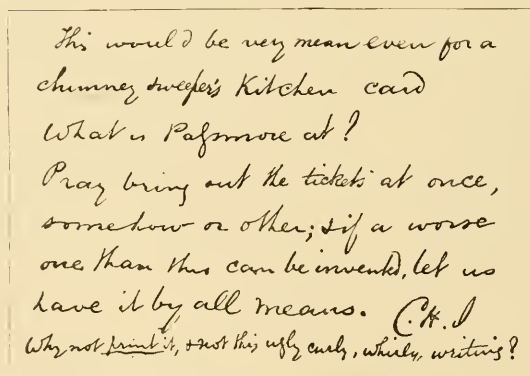 This would be very mean even for a
chimney sweeper's Kitchen card
What is Passmore at?
Pray bring out the tickets at once,
somehow or other; & if a worse
one than this can be invented, let us
have it by all means. C. H. S
Why not print it, & not this ugly curly, whirly, writing?